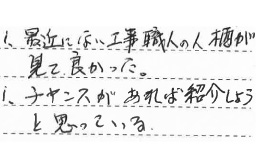 1、最近にない工事職人の人柄が
見て良かった。
1、チャンスがあれば紹介しよう
と思っている。